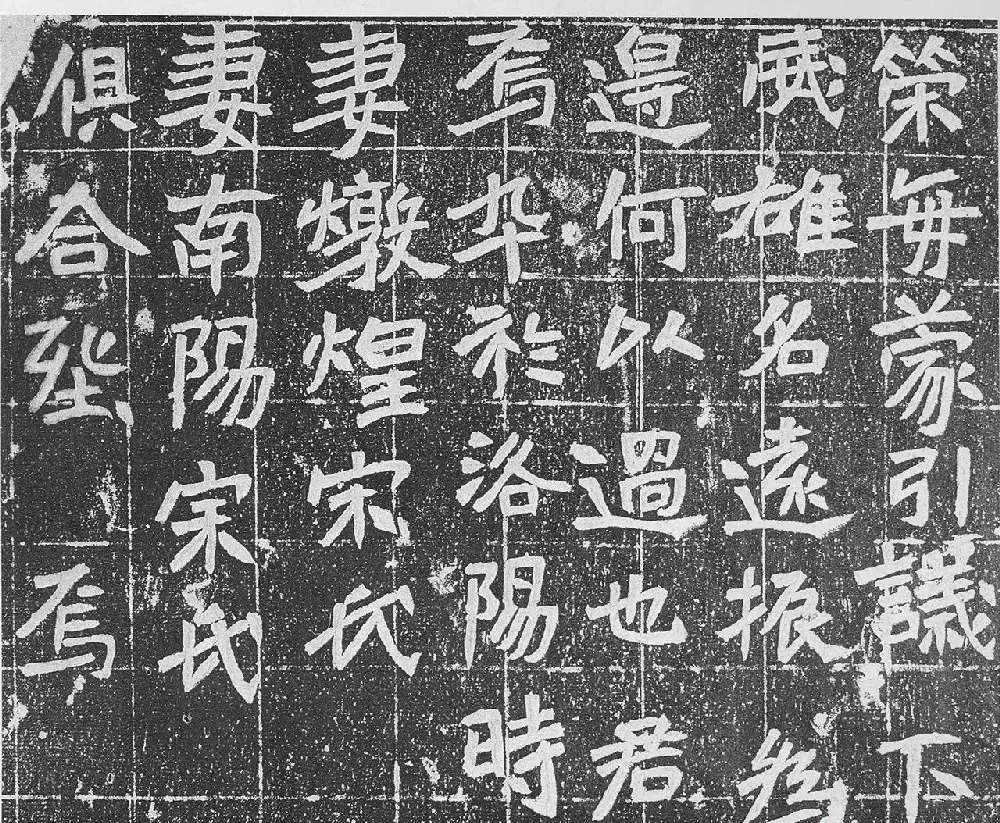 榮每蒙引議下
威雄名遠振
何以過也君
焉卒於洛陽時
妻燉煌宋氏
妻南陽宋氏
俱合葬焉